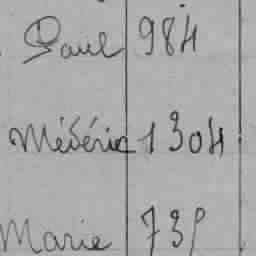 Paul 984
Médéric 1304
Marie 739